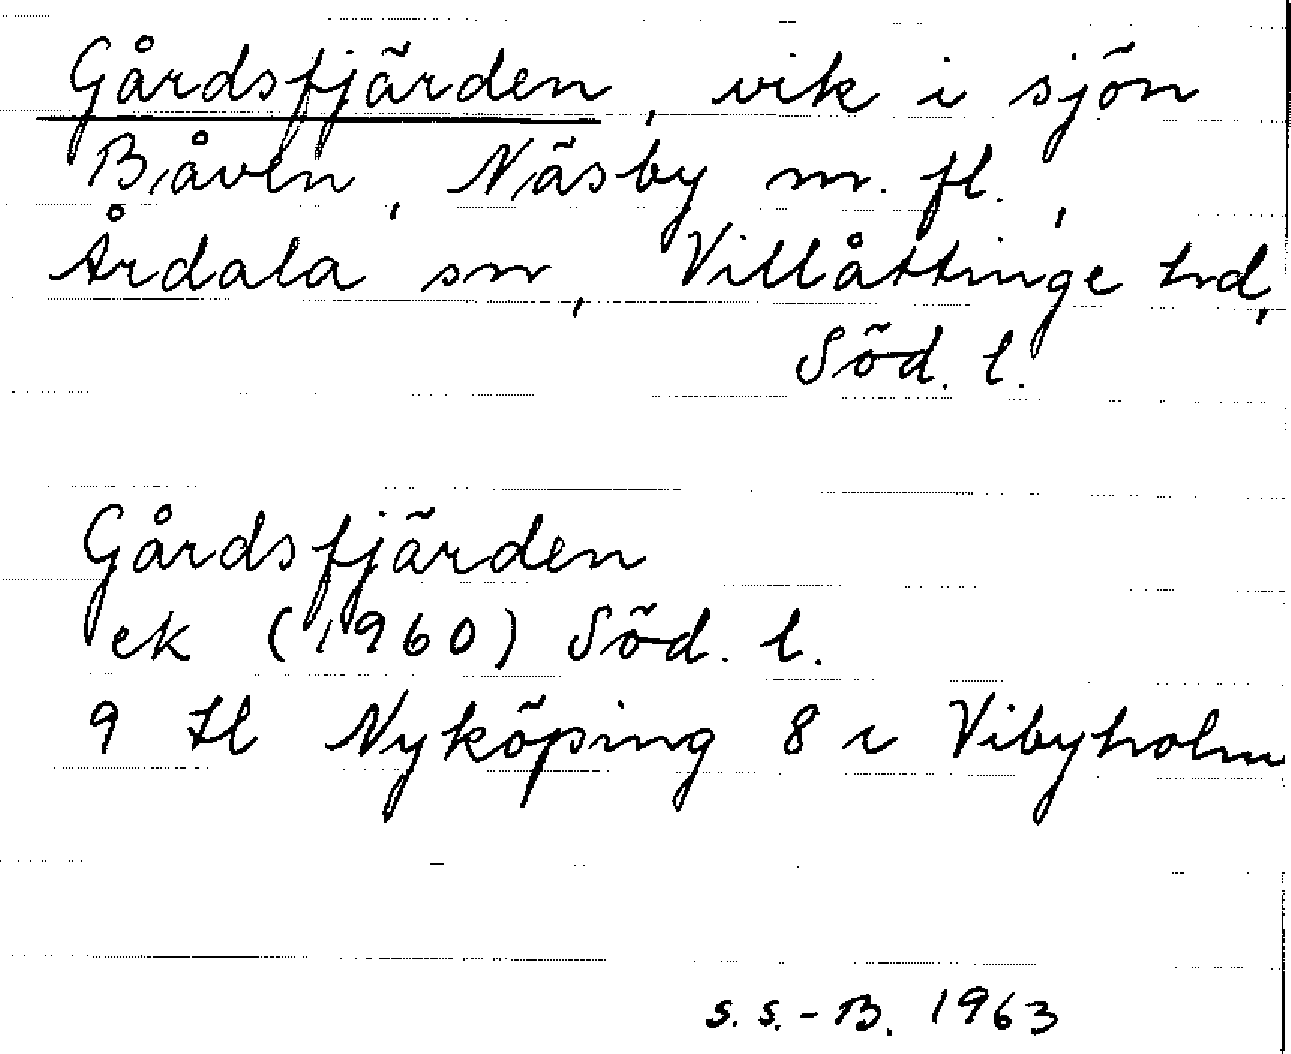 Gårdsfjärden, vik i sjön
Båven, Näsby m. fl.,
Årdala sn, Villåttinge hd,
Söd. l.
Gårdsfjärden
ek (1960) Söd. l.
9 H Nyköping 8 i Vibyholm
S. S.-B. 1963